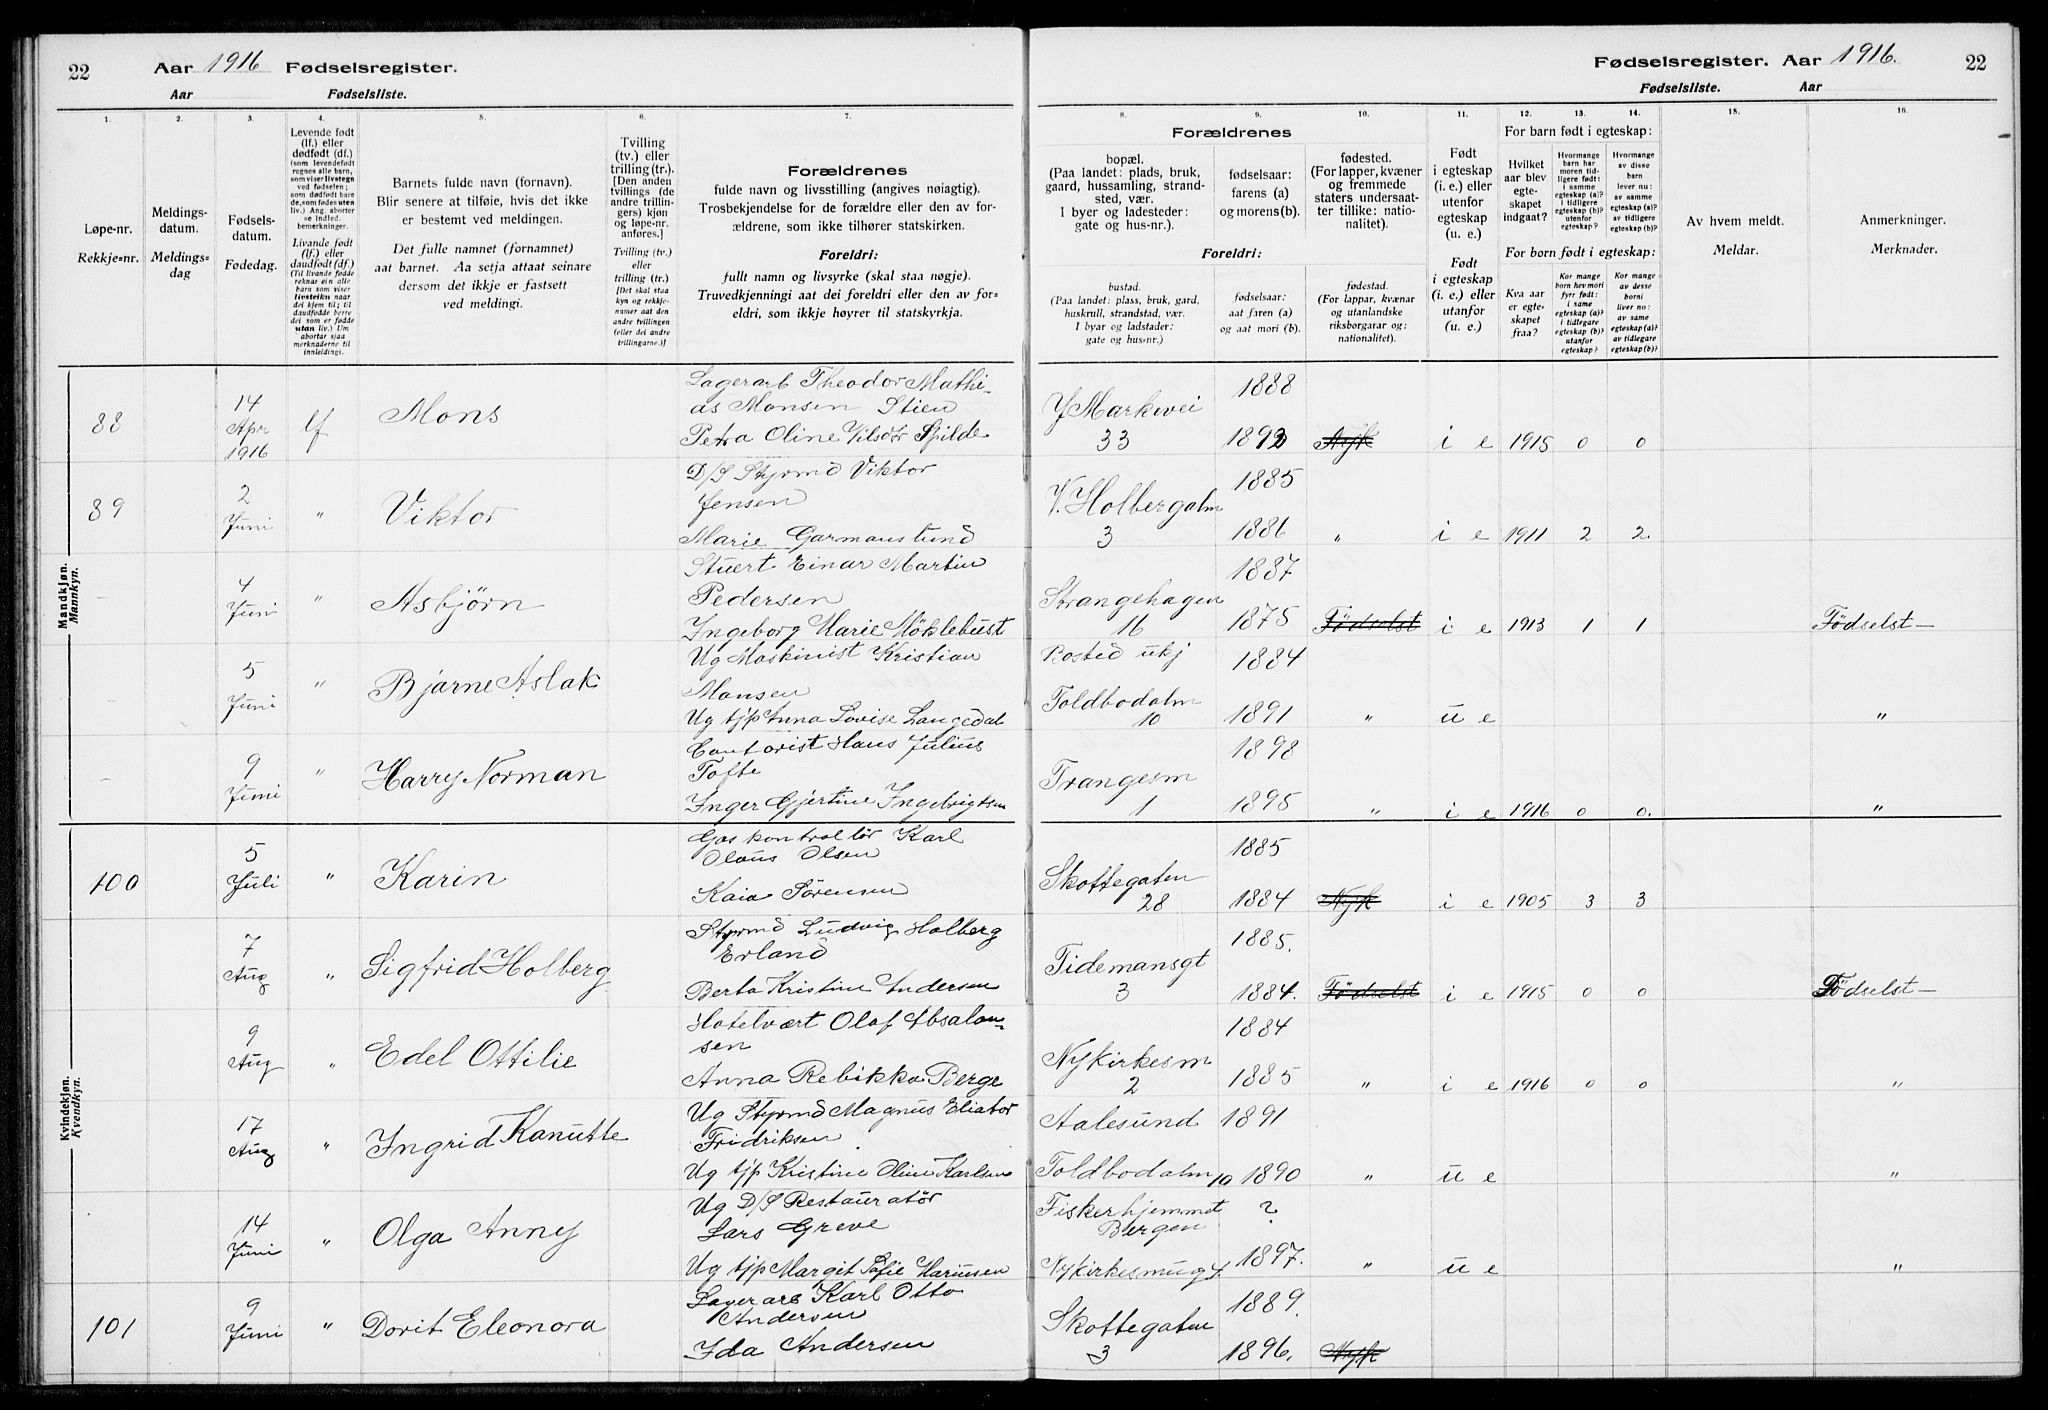 22 Aar 1916 Fødselsregister.
Aar Fødselsliste.
Fødselsregister. Aar 1916. 22
Fødselsliste. Aar
1. 2. 3. 4. 5. 6. 7. 8. 9. 10. 11. 12. 13. 14. 15. 16.
Løpe-nr.
Rekkje=nr.
Meldings-
datum.
Meldings=
dag
Fødsels-
datum.
Fødedag.
Levende født
(lf.) eller
dødfødt (df.)
(som levendefødt
regnes alle barn,
som viser livstegn
ved fødselen;
som dødfødt barn
de, som fødes uten
liv.) Ang. aborter
se indled.
bemerkninger.
Livande født
(lf.) eller
daudfødt (df.)
(Til livande fødde
reknar ein alle
barn som viser
livsteikn naar
dei kjem til; til
daudfødde berre
dei som er fødde
utan liv.) Um
abortar sjaa
merknaderne til
innleidingi.
Barnets fulde navn (fornavn).
Blir senere at tilføie, hvis det ikke
er bestemt ved meldingen.
Det fulle namnet (fornamnet)
aat barnet. Aa setja attaat seinare
dersom det ikkje er fastsett
ved meldingi.
Tvilling
(tv.) eller
trilling (tr.).
[Den anden
tvillings (de
andre trillin-
gers) kjøn
og løpe-nr.
anføres.]
Tvilling (tv.)
eller
trilling (tr.)
[Det skal staa
kyn og rekkje=
numer aat den
andre tvillingen
(eller dei andre
trillingarne.)]
Forældrenes
fulde navn og livsstilling (angives nøiagtig).
Trosbekjendelse for de forældre eller den av for-
ældrene, som ikke tilhører statskirken.
Foreldri:
fullt namn og livsyrke (skal staa nøgje).
Truvedkjenningi aat dei foreldri eller den av for=
eldri, som ikkje høyrer til statskyrkja.
Forældrenes
bopæl.
(Paa landet: plads, bruk,
gaard, hussamling, strand-
sted, vær.
I byer og ladesteder:
gate og hus-nr.).
fødselsaar:
farens (a)
og morens (b).
fødested.
(For lapper, kvæner
og fremmede
staters undersaat-
ter tillike: natio-
nalitet).
Foreldri:
bustad.
(Paa landet: plass, bruk, gard,
huskrull, strandstad, vær.
I byar og ladstader:
gate og hus=nr.)
fødselsaar:
aat faren (a)
og aat mori (b).
fødestad.
(For lappar, kvænar
og utanlandske
riksborgarar og:
nationalitet).
Født
i egteskap
(i. e.) eller
utenfor
egteskap
(u. e.)
Født
i egteskap
(i. e.) eller
utanfor
(u. e.)
For barn født i egteskap:
Hvilket
aar blev
egte-
skapet
indgaat?
Hvormange
barn har
moren tid-
ligere født:
i samme
egteskap (a)?
i tidligere
egteskap (b)?
utenfor
egteskap?
Hvormange
av disse
barn
lever nu:
av samme
egteskap (a)?
av tidligere
egteskap (b)?
For born født i egteskap:
Kva aar
er egte-
skapet
fraa?
Kor mange
born hev mori
fyrr født:
i same
egteskap (a)?
i tidlegare
egteskap (b)?
utanfor
egteskap?
Kor mange
av desse
borni
liver no:
av same
egteskap (a)?
av tidlegare
egteskap (b)?
Av hvem meldt.
Meldar.
Anmerkninger.
Merknader.
Mandkjøn.
Mannkyn.
88 14 Apr 1916 lf Mons
Lagerarb Theodor Mathi-
as Monsen Stien
Petra Oline Nilsdtr Spilde
Y Markevei 33 1888 1892 Nyk i e 1915 0 0
89 2 Juni " Viktor
D/S Styrmd Viktor
Jensen
Marie Garmanslund
V. Holbergalm 3 1885 1886 " i e 1911 2 2.
4 Juni " Asbjörn
Stuert Einar Martin
Pedersen
Ingeborg Marie Möklebust
Strangehagen 16 1887 1875 Födselst i e 1913 1 1 Födselst—
5 Juni " Bjarne Aslak
Ug Maskinist Kristian
Monsen
Ug tjp Anna Lovise Langedal
Bosted ukj 1884
Toldbodalm 10 1891 " u e "
9 Juni " Harry Norman
Contorist Hans Julius
Tofte
Inger Gjertine Ingebrigtsen
Trangesm 1 1898 1895 " i e 1916 0 0. "
Kvindekjøn.
Kvendkyn.
100 5 Juli " Karin
Gaskontrollör Karl
Olaus Olsen
Kaia Sörensen
Skottegaten 28 1885 1884 Nyk i e 1905 3 3
7 Aug " Sigfrid Holberg
Styrmd Ludvig Holberg
Erland
Berta Kristine Andersen
Tidemansgt 3 1885. 1884. Födselst i e 1915 0 0 Födselst—
9 Aug " Edel Ottilie
Hotelvært Olaf Absalon-
sen
Anna Rebikka Berge
Nykirkesm 2 1884 1885 " i e 1916 0 0 "
17 Aug " Ingrid Kanutte
Ug Styrmd Magnus Eliator
Fridriksen
Ug tjp Kristine Oline Karlsen
Aalesund 1891
Toldbodalm 10 1890 " u e "
14 Juni " Olga Anny
Ug D/S Restauratør
Lars Greve
Ug tjp Margit Sofie Mariusen
Fiskerhjemmet
Bergen ?
Nykirkesmug 4. 1897. " u e "
101 9 Juni " Dorit Eleonora
Lagerarb Karl Otto
Andersen
Ida Andersen
Skottegaten 3 1889. 1896. Nyk